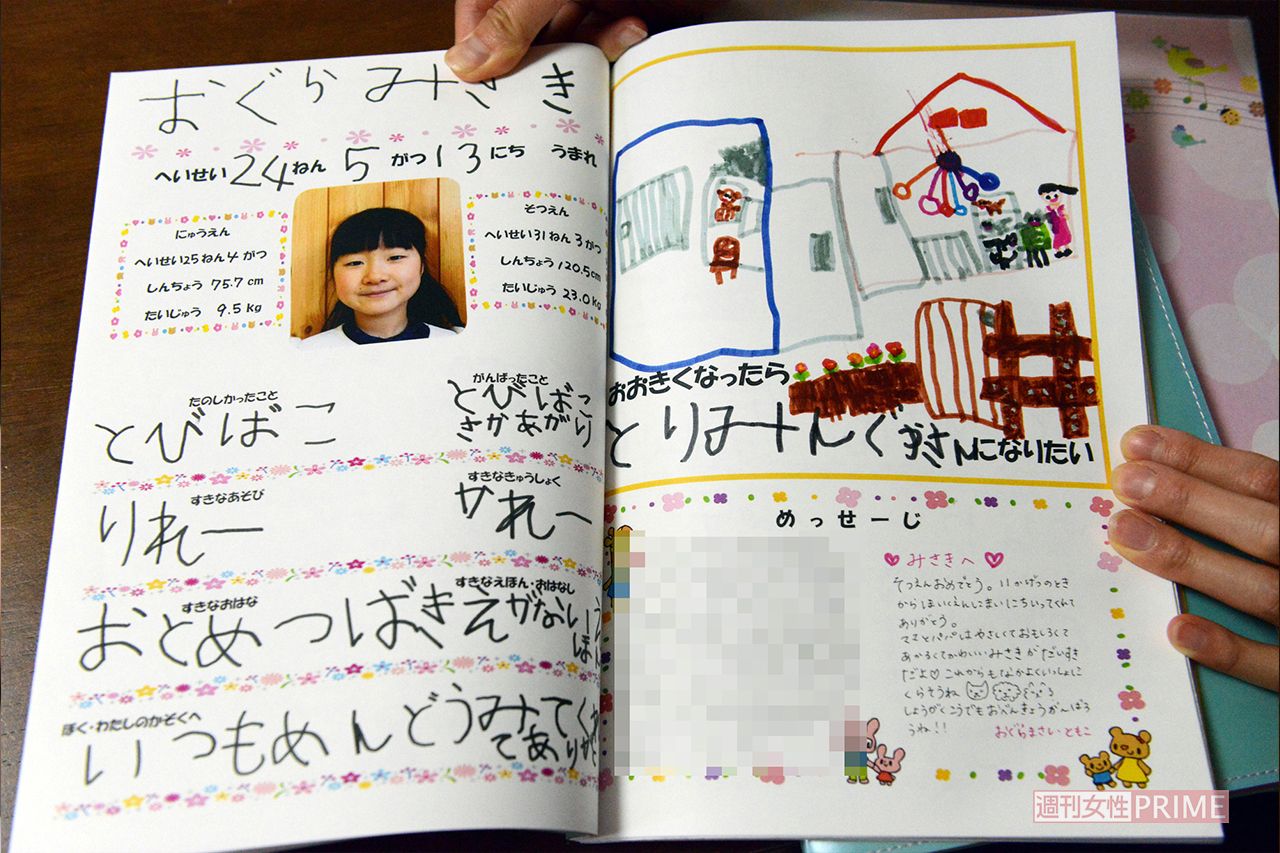 おぐらみさき
へいせい24ねん5がつ13にち うまれ
にゅうえん
へいせい25ねん4がつ
しんちょう 75.7cm
たいじゅう 9.5kg
そつえん
へいせい31ねん3がつ
しんちょう 120.5cm
たいじゅう 23.0kg
たのしかったこと
とびばこ
がんばったこと
とびばこ
さかあがり
すきなあそび
りれー
すきなきゅうしょく
かれー
すきなおはな
おとめつばき
すきなえほん・おはなし
えがない
ほん
ぼく・わたしのかぞくへ
いつもめんどうみてく
てありがと
おおきくなったら
とりみんぐやさんになりたい
めっせーじ
みさきへ
そつえんおめでとう。11かげつのとき
からほいくえんにまいにちいってくれて
ありがとう。
ママとパパはやさしくておもしろくて
あかるくてかわいいみさきがだいすき
だよ♡これからもなかよくいっしょに
くらそうね
しょうがくこうでもおべんきょうがんばろ
うね!!
おぐらまさい・ともこ
週刊女性PRIME